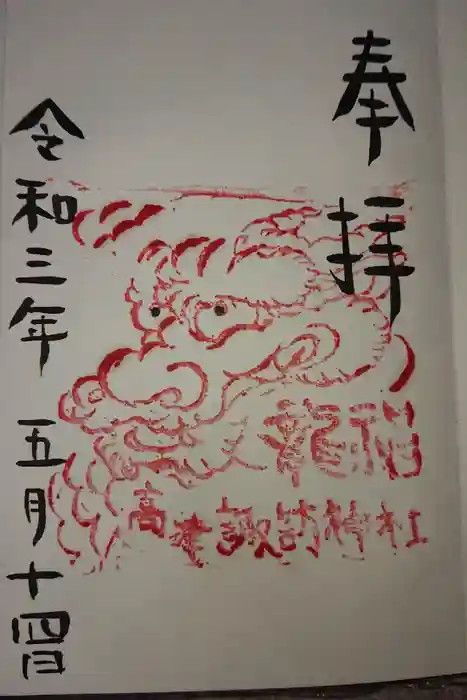 奉拝
龍神
高津諏訪神社
令和三年 五月十四日